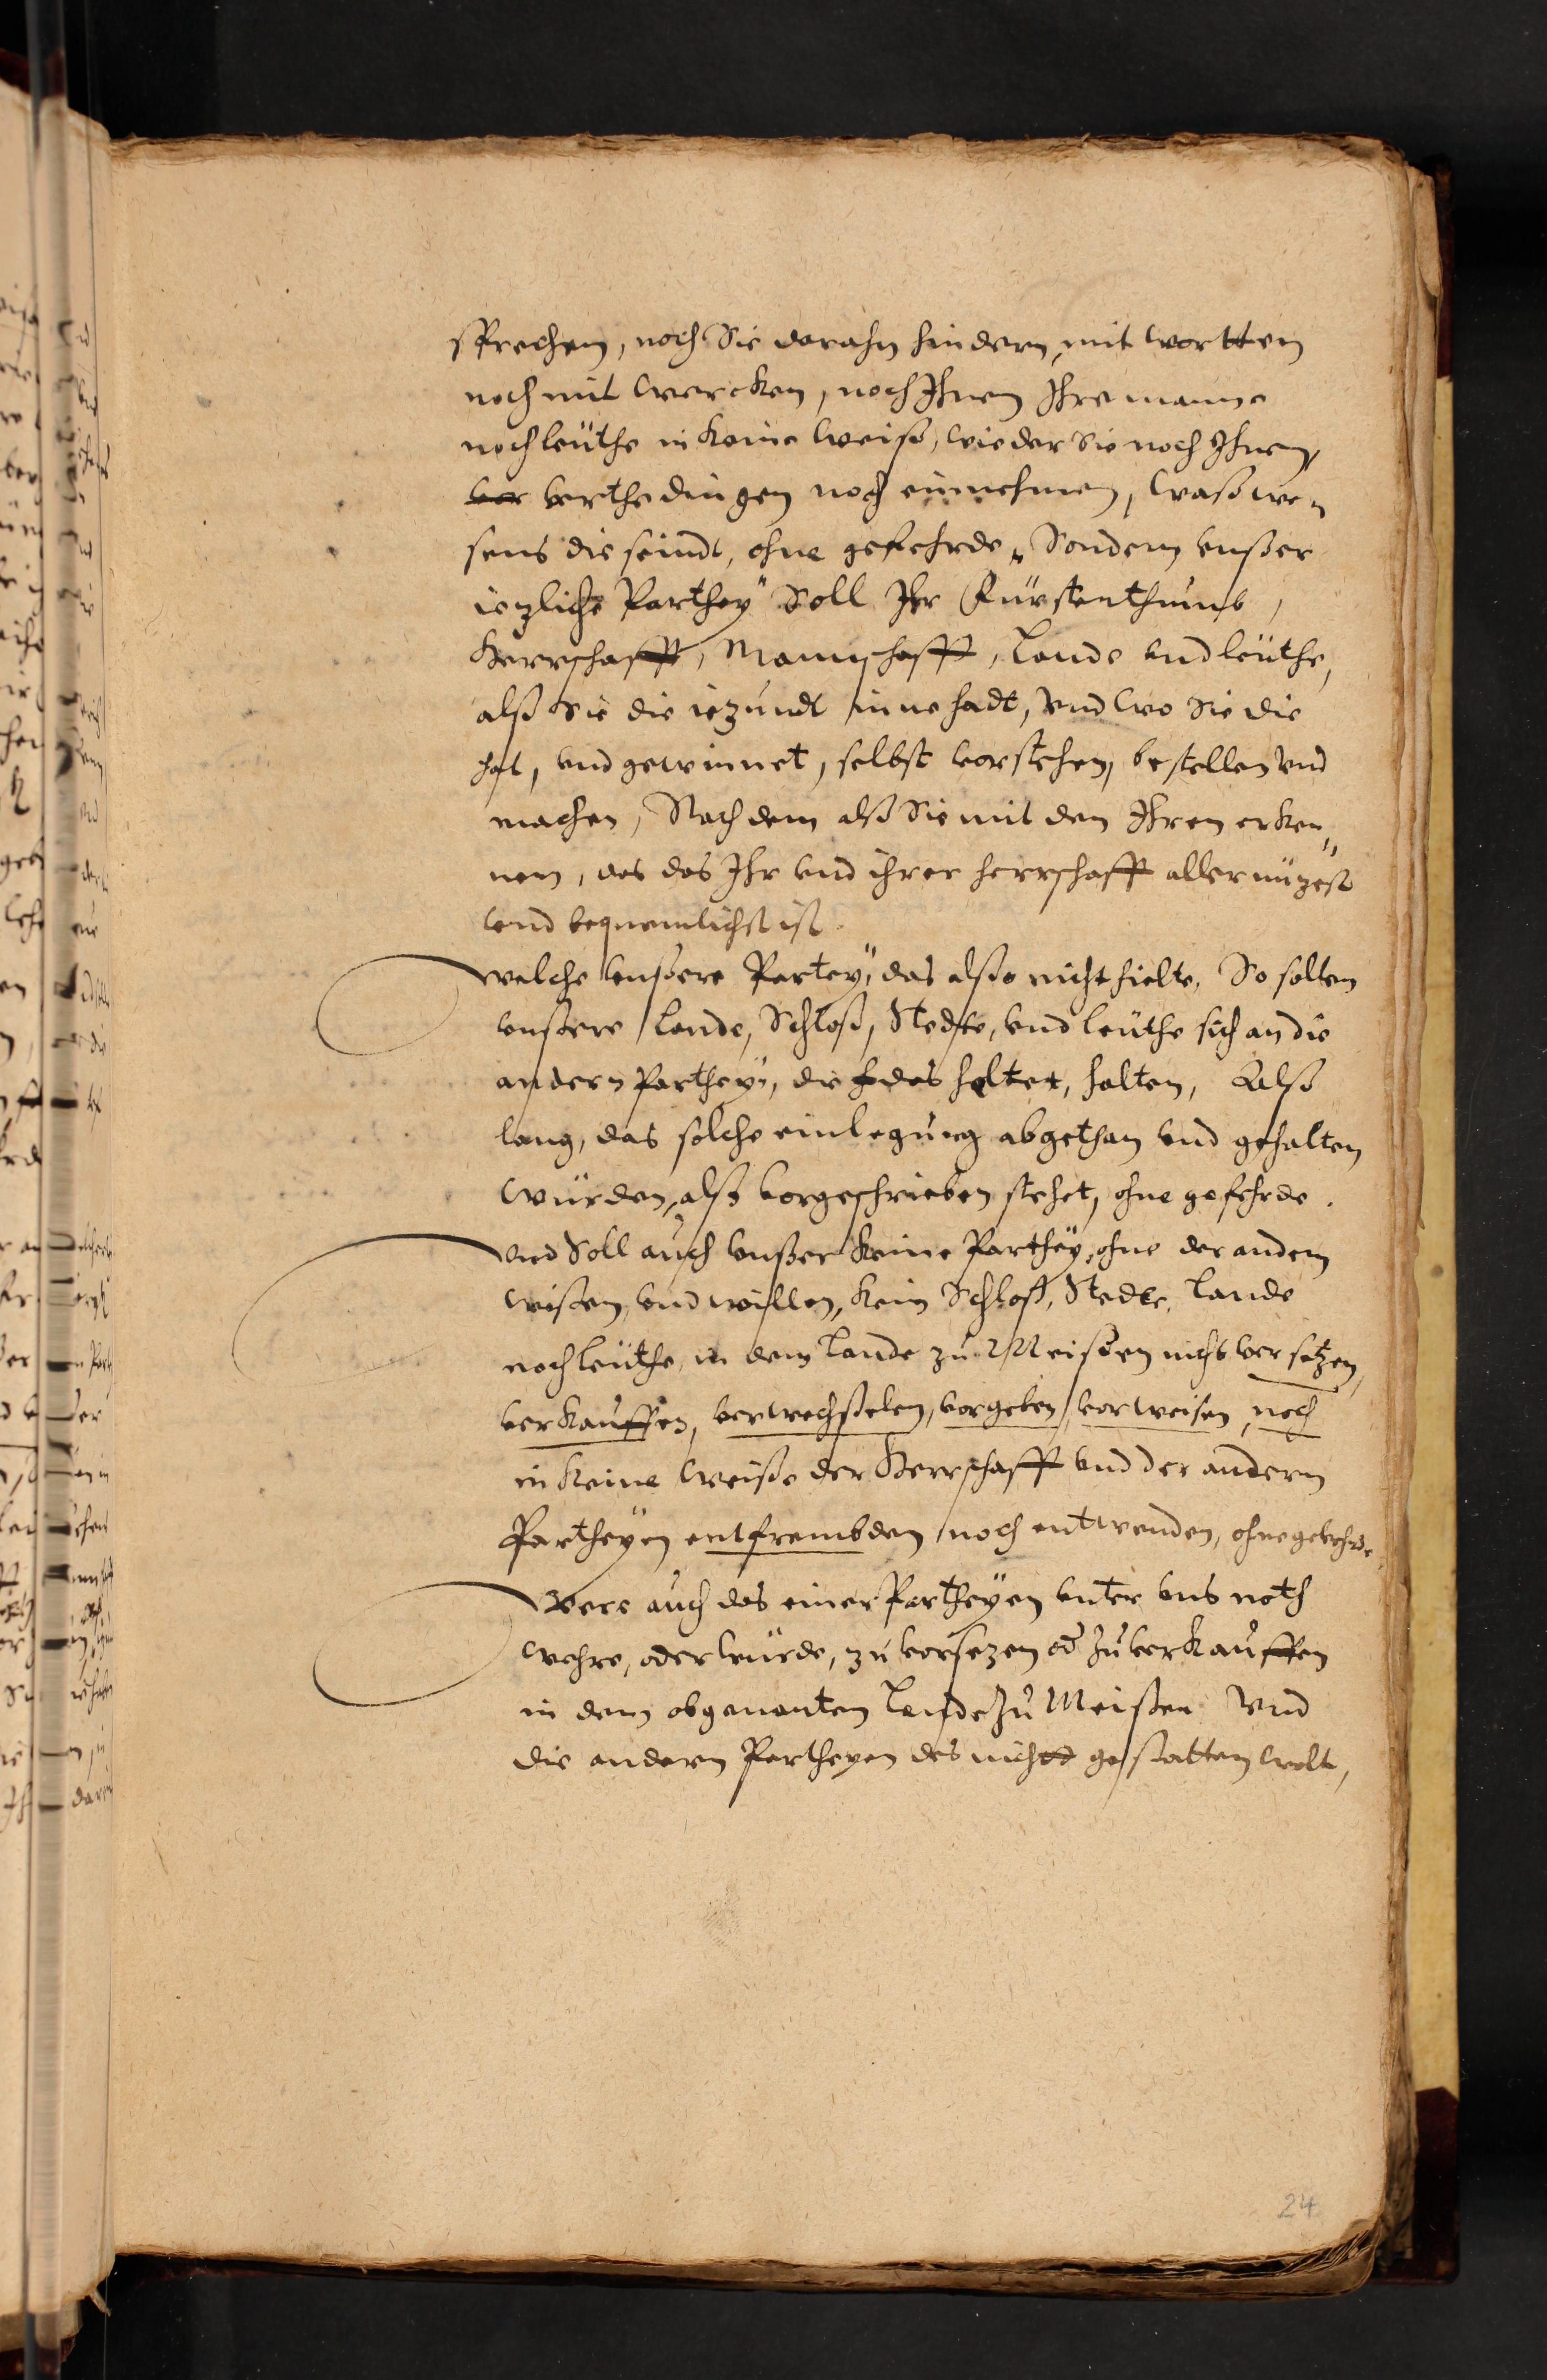 sprechen, noch Sie darahn hindern, mit wortten
noch mit Wercken, noch Ihnen Ihre manne
noch leüthe in keine Weiß, wieder Sie noch Ihnen,
vor verthedingen noch einnehmen, waß we„
sens die seindt, ohne gefehrde, Sondern vnßer
iezliche Parthey Soll Ihr Fürstenthumb,
Herrschafft, Mannschafft, Lande vnd leüthe,
alß Sie die iezundt inne hadt, vnd wo Sie die
hat, vnd gewinnet, selbst vorstehen, bestellen vnd
machen, Nach dem alß Sie mit den Ihren erken„
nen, das das Ihr vnd ihrer herrschafft allernüzest
vnd bequemlichst ist.
welche vnßere Partey, das alßo nicht hielte, So solten
vnßere Lande, Schloß, Stedte, vnd leüthe sich an die
andern Parthey, die das haltet, halten, Alß
lang, das solche einlegung abgethan vnd gehalten
würden, alß vorgeschrieben stehet, ohne gefehrde.
vnd Soll auch vnßer keine Parthey, ohne der andern
wißen, vnd willen, kein Schloß, Stedte, Lande
noch leüthe, in dem Lande zu Meißen nicht versetzen,
verkauffen, verwechßelen, vorgeben, vorweisen, noch
in keine Weiße der Herrschafft vnd der andern
Partheyen entfrembden noch entwenden, ohne gevehrde
Were auch das einer Partheyen vnter vns noth
wehre, oder würde, zu vorsezen od zu verkauffen
in dem obgenanten Lande zu Meißen vnd
die andern Partheyen des nicht gestatten wolt,
24